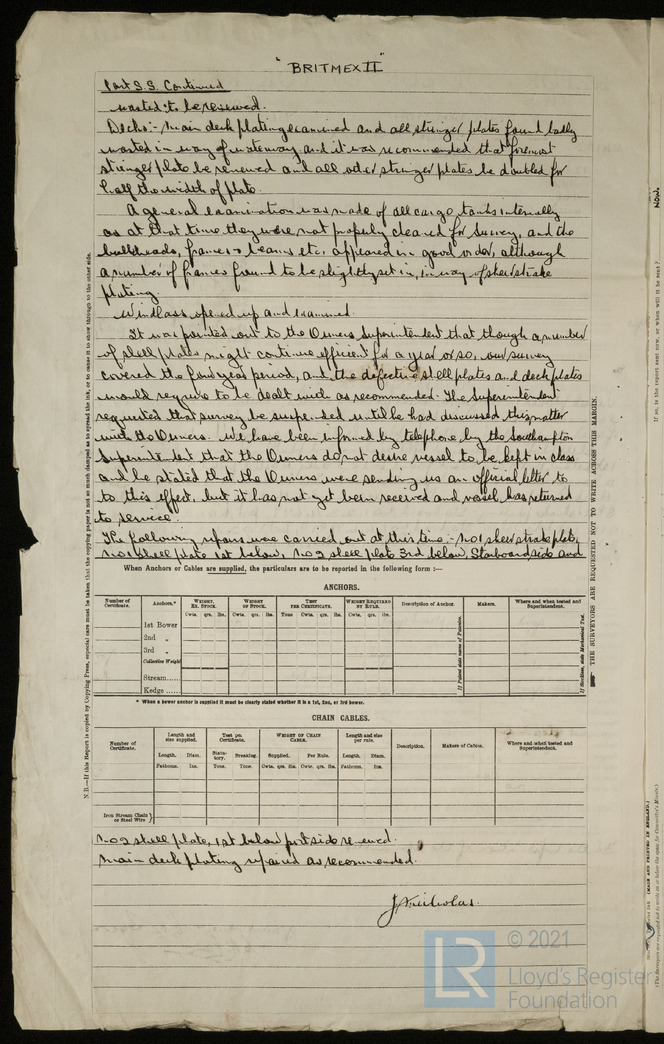 "BRITMEX II"
Port S.S. Continued
wasted: to be renewed.
Decks:- Main deck plating examined and all stringer plates found badly
wasted in way of waterway and it was recommended that foremost
stringer plate be renewed and all other stringer plates be doubled for
half the width of plate.
A general examination was made of all cargo tanks internally
as at that time they were not properly cleared for survey, and the
bulkheads, frames & beams etc. appeared in good order, although
a number of frames found to be slightly set in, in way of sheerstrake
plating.
Windlass opened up and examined.
It was pointed out to the Owners Superintendent that though a number
of shell plates might continue efficient for a year or so, our survey
covered the four year period, and the defective shell plates and deck plates
would require to be dealt with as recommended. The Superintendent
requested that survey be suspended until he had discussed this matter
with the Owners. We have been informed by telephone by the Southampton
Superintendent that the Owners do not desire vessel to be kept in class
and he stated that the Owners were sending us an official letter to
to this effect, but it has not yet been received and vessel has returned
to service.
The following repairs were carried out at this time:- No1 sheerstrake plate,
No1 shell plate 1st below, No2 shell plate 3rd below, Starboard side and
When Anchors or Cables are supplied, the particulars are to be reported in the following form :—
ANCHORS.
Number of Certificate. Anchors.* WEIGHT, EX. STOCK. WEIGHT OF STOCK. TEST PER CERTIFICATE. WEIGHT REQUIRED BY RULE. Description of Anchor. Makers. Where and when tested and Superintendent.
Cwts. qrs. lbs. Cwts. qrs. lbs. Tons Cwts. qrs. lbs. Cwts. qrs. lbs.
1st Bower
2nd „
3rd „
Collective Weight
Stream
Kedge
If Patent state name of Patentee.
If Stockless, state Mechanical Test.
* When a bower anchor is supplied it must be clearly stated whether it is a 1st, 2nd, or 3rd bower.
CHAIN CABLES.
Number of Certificate. Length and size supplied. Test per Certificate. WEIGHT OF CHAIN CABLE. Length and size per rule. Description. Makers of Cables. Where and when tested and Superintendent.
Length. Diam. Statutory. Breaking. Supplied. Per Rule. Length. Diam.
Fathoms. Ins. Tons. Tons. Cwts. qrs. lbs. Cwts. qrs. lbs. Fathoms. Ins.
Iron Stream Chain or Steel Wire
No2 shell plate, 1st below port side renewed.
Main deck plating repaired as recommended.
J Nicholas.
N.B.—If this Report is copied by Copying Press, especial care must be taken that the copying paper is not so much damped as to spread the ink, or to cause it to show through to the other side.
THE SURVEYORS ARE REQUESTED NOT TO WRITE ACROSS THIS MARGIN.
Now.
If so, is the report sent now, or when will it be sent?
(MADE AND PRINTED IN ENGLAND.)
LR
© 2021
Lloyd's Register
Foundation